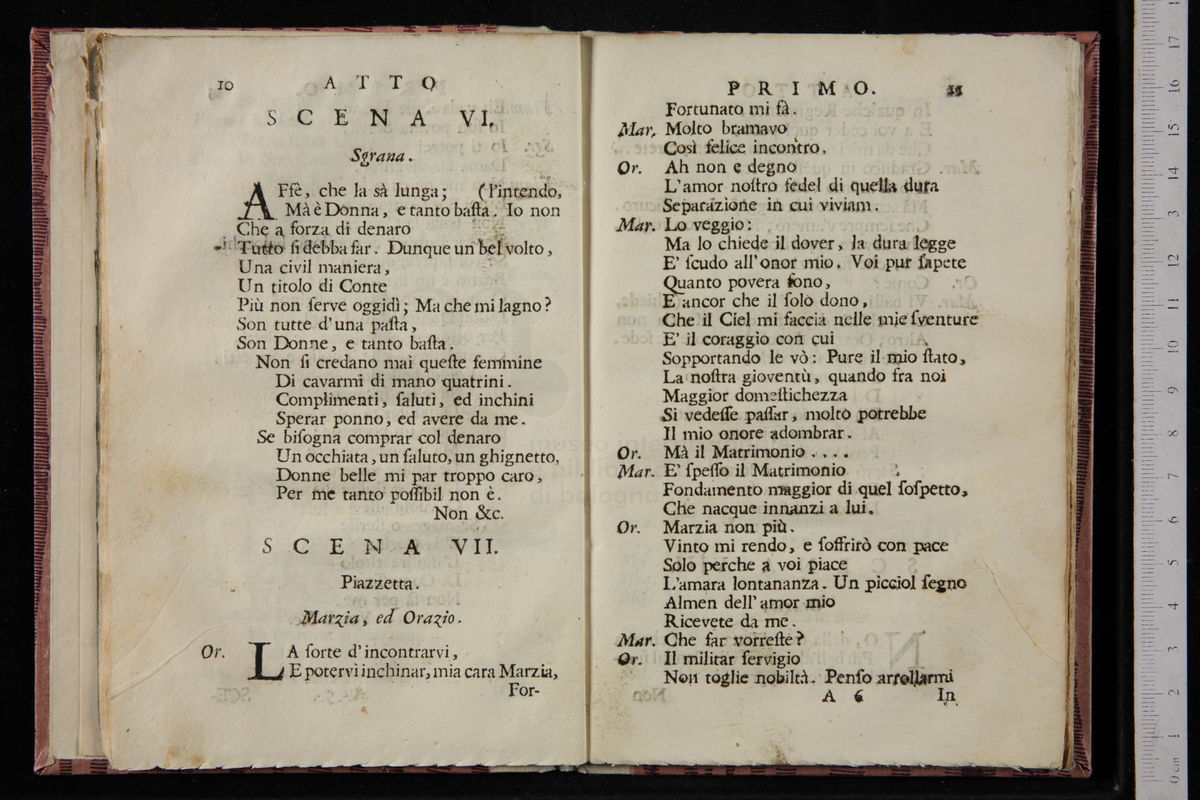 10 ATTO
SCENA VI.
Sgrana.
AFfè, che la sà lunga; (l'intendo,
Mà è Donna, e tanto baſta. Io non
Che a forza di denaro
Tutto ſi debba far. Dunque un bel volto,
Una civil maniera,
Un titolo di Conte
Più non ſerve oggidì; Ma che mi lagno?
Son tutte d'una paſta,
Son Donne, e tanto baſta.
Non ſi credano mai queſte femmine
Di cavarmi di mano quatrini.
Complimenti, ſaluti, ed inchini
Sperar ponno, ed avere da me.
Se biſogna comprar col denaro
Un occhiata, un ſaluto, un ghignetto,
Donne belle mi par troppo caro,
Per me tanto poſſibil non è.
Non &c.
SCENA VII.
Piazzetta.
Marzia, ed Orazio.
Or. LA ſorte d'incontrarvi,
E potervi inchinar, mia cara Marzia,
For-
PRIMO. 11
Fortunato mi fà.
Mar. Molto bramavo
Così felice incontro.
Or. Ah non e degno
L'amor noſtro fedel di quella dura
Separazione in cui viviam.
Mar. Lo veggio:
Ma lo chiede il dover, la dura legge
E' ſcudo all'onor mio. Voi pur ſapete
Quanto povera ſono,
E ancor che il ſolo dono,
Che il Ciel mi faccia nelle mie ſventure
E' il coraggio con cui
Sopportando le vò: Pure il mio ſtato,
La noſtra gioventù, quando fra noi
Maggior domeſtichezza
Si vedeſſe paſſar, molto potrebbe
Il mio onore adombrar.
Or. Mà il Matrimonio ....
Mar. E' ſpeſſo il Matrimonio
Fondamento maggior di quel ſoſpetto,
Che nacque innanzi a lui.
Or. Marzia non più.
Vinto mi rendo, e ſoffrirò con pace
Solo perche a voi piace
L'amara lontananza. Un picciol ſegno
Almen dell'amor mio
Ricevete da me.
Mar. Che far vorreſte?
Or. Il militar ſervigio
Non toglie nobiltà. Penſo arrollarmi
A 6 In